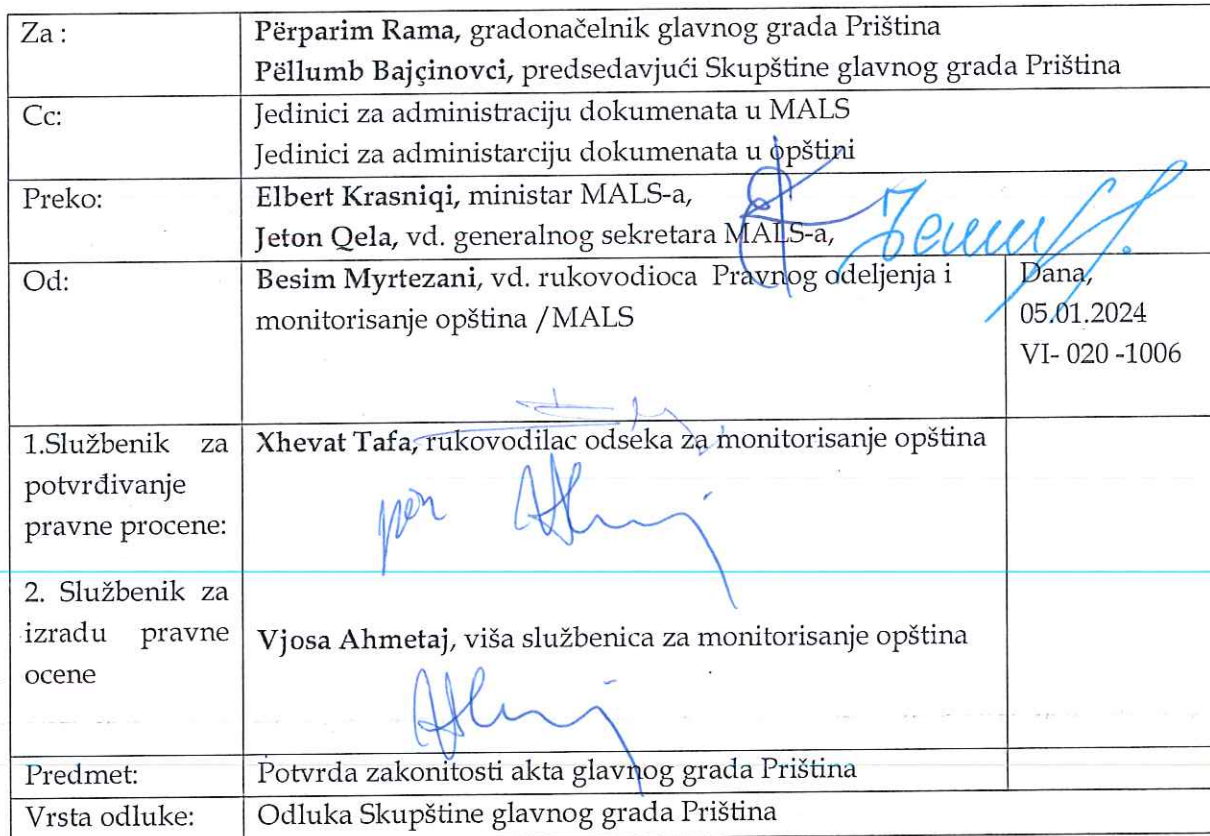 Za :
Përparim Rama, gradonačelnik glavnog grada Priština
Pëllumb Bajçinovci, predsedavjući Skupštine glavnog grada Priština
Cc:
Jedinici za administraciju dokumenata u MALS
Jedinici za administarciju dokumenata u opštini
Preko:
Elbert Krasniqi, ministar MALS-a,
Jeton Qela, vd. generalnog sekretara MALS-a,
Od:
Besim Myrtezani, vd. rukovodioca Pravnog odeljenja i
monitorisanje opština /MALS
Dana,
05.01.2024
VI- 020 -1006
1.Službenik za
potvrđivanje
pravne procene:
Xhevat Tafa, rukovodilac odseka za monitorisanje opština
për
2. Službenik za
izradu pravne
ocene
Vjosa Ahmetaj, viša službenica za monitorisanje opština
Predmet:
Potvrda zakonitosti akta glavnog grada Priština
Vrsta odluke:
Odluka Skupštine glavnog grada Priština